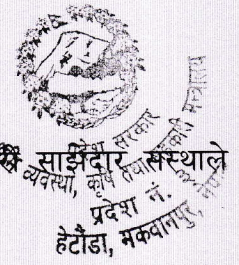 प्रदेश सरकार
व्यवस्था, कृषि तथा सहकारी मन्त्रालय
साझेदार संस्थाले
प्रदेश नं. ३
हेटौंडा, मकवानपुर, नेपाल